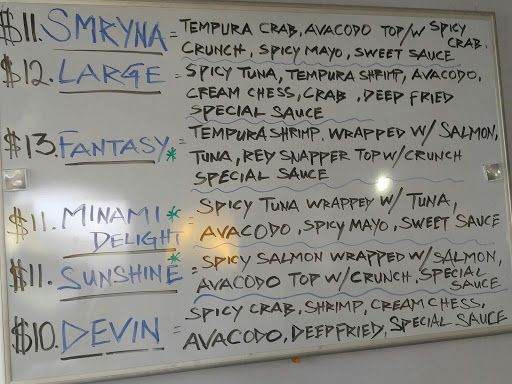 $11. SMRYNA = TEMPURA CRAB, AVACODO TOP/W SPICY CRAB.
CRUNCH, SPICY MAYO, SWEET SAUCE
$12. LARGE = SPICY TUNA, TEMPURA SHRIMP, AVACODO,
CREAM CHESS, CRAB, DEEP FRIED
SPECIAL SAUCE
$13. FANTASY* = TEMPURA SHRIMP, WRAPPED W/ SALMON,
TUNA, RED SNAPPER TOP W/CRUNCH
SPECIAL SAUCE
$11. MINAMI* = SPICY TUNA WRAPPED W/ TUNA,
DELIGHT AVACODO, SPICY MAYO, SWEET SAUCE
$11. SUNSHINE* = SPICY SALMON WRAPPED W/SALMON,
AVACODO TOP W/CRUNCH, SPECIAL SAUCE
$10. DEVIN = SPICY CRAB, SHRIMP, CREAM CHESS,
AVACODO, DEEP FRIED, SPECIAL SAUCE